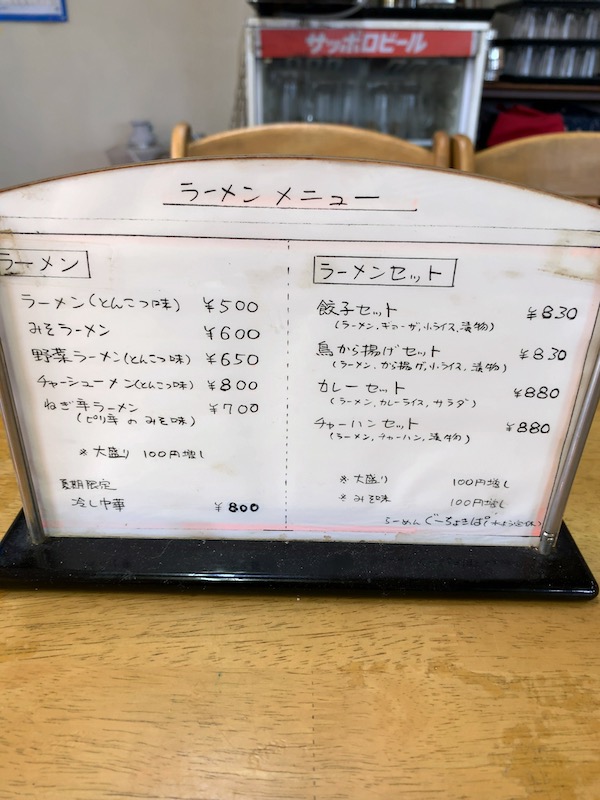 サッポロビール
ラーメン メニュー
ラーメン
ラーメン(とんこつ味) ¥500
みそラーメン ¥600
野菜ラーメン(とんこつ味) ¥650
チャーシューメン(とんこつ味) ¥800
ねぎ辛ラーメン ¥700
(ピリ辛のみそ味)
※大盛り 100円増し
夏期限定
冷し中華 ¥800
ラーメンセット
餃子セット ¥830
(ラーメン、ギョーザ、小ライス、漬物)
鳥から揚げセット ¥830
(ラーメン、から揚げ、小ライス、漬物)
カレーセット ¥880
(ラーメン、カレーライス、サラダ)
チャーハンセット ¥880
(ラーメン、チャーハン、漬物)
※大盛り 100円増し
※みそ味 100円増し
らーめん ぐーちょきぱー